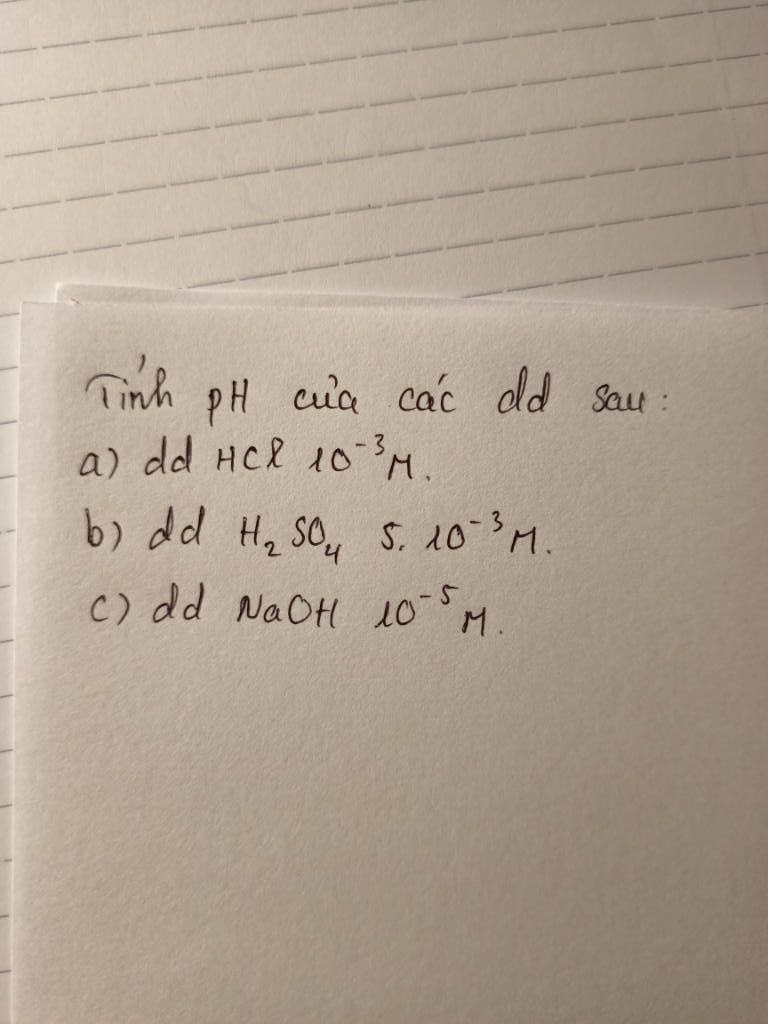 Tính pH của các dd sau:
a) dd HCl 10⁻³M.
b) dd H₂SO₄ 5. 10⁻³M.
c) dd NaOH 10⁻⁵M.